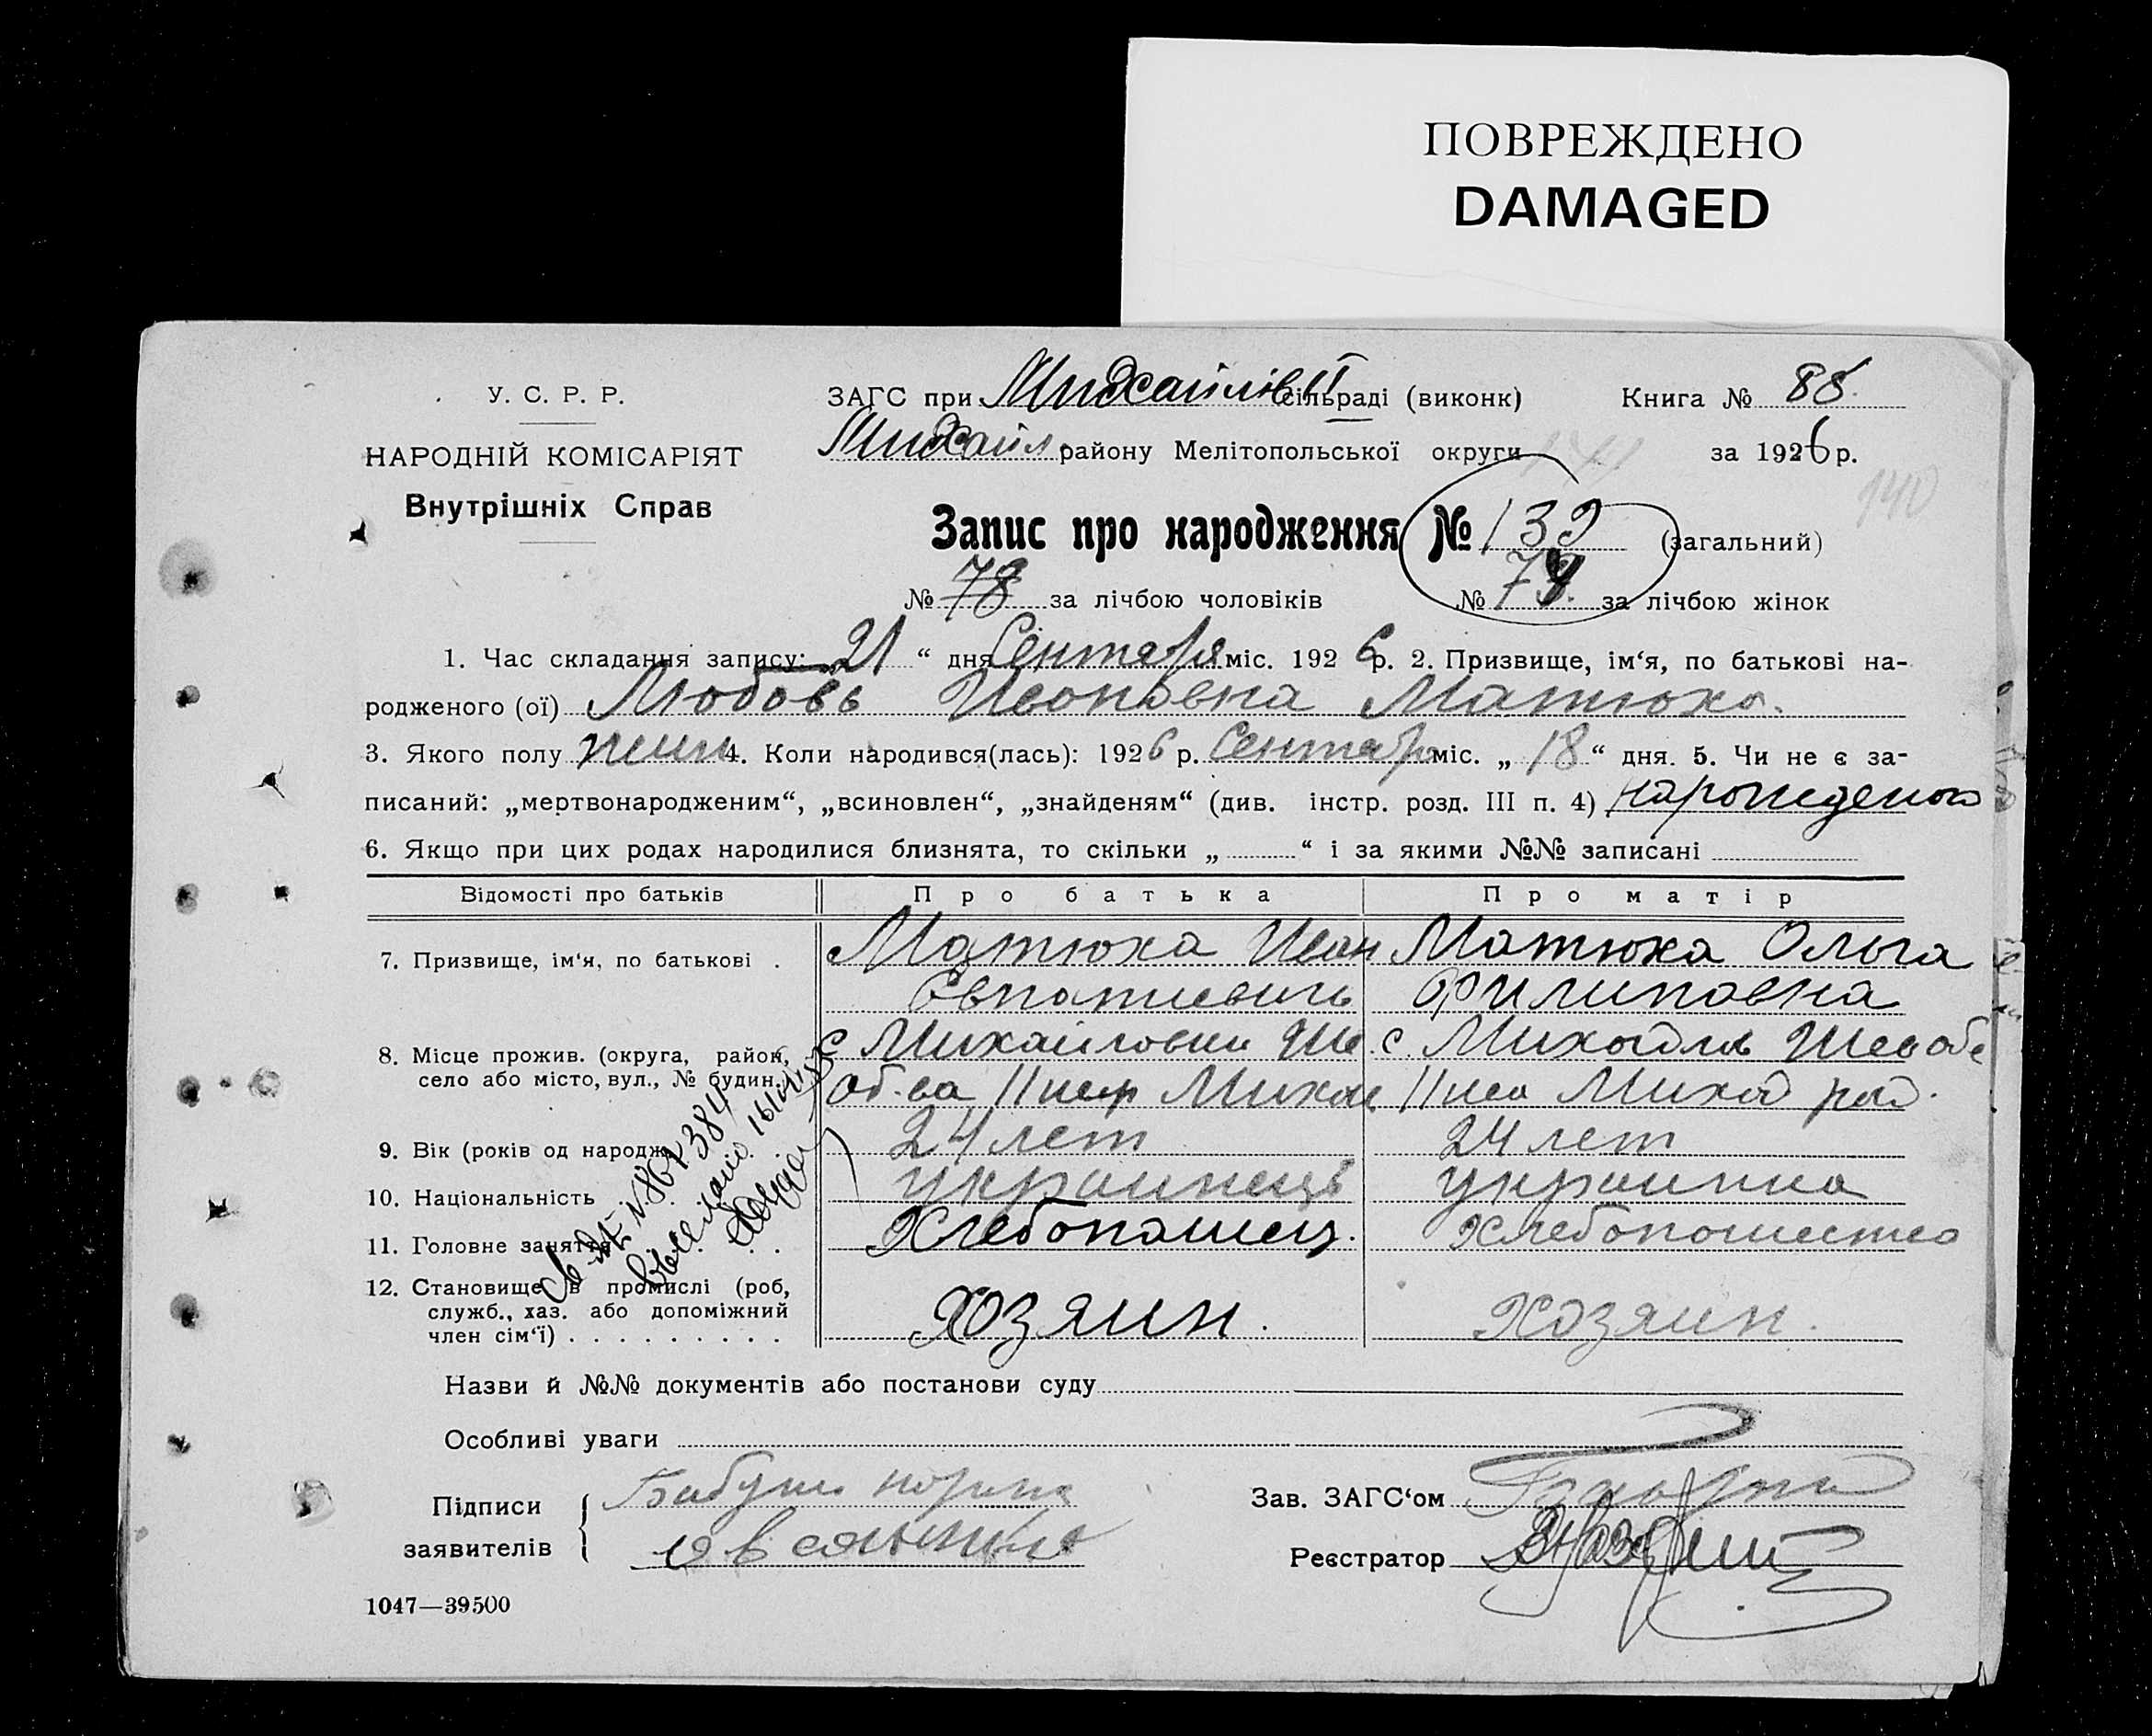 ПОВРЕЖДЕНО
DAMAGED
У. С. Р. Р.
НАРОДНІЙ КОМІСАРІЯТ
Внутрішніх Справ
ЗАГС при Михайлів II сільраді (виконк)
Книга № 88
Михайл. району Мелітопольської округи
за 1926 р.
140
Запис про народження № 139 (загальний)
№ 78 за лічбою чоловіків № 74 за лічбою жінок
1. Час складання запису: „21“ дня Сентября міс. 1926 р. 2. Призвище, ім‘я, по батькові на-
родженого (ої) Любовь Ивановна Матюха.
3. Якого полу жин 4. Коли народився(лась): 1926 р. Сентябр міс. „18“ дня. 5. Чи не є за-
писаний: „мертвонародженим“, „всиновлен“, „знайденям“ (див. інстр. розд. III п. 4) нарожденою
6. Якщо при цих родах народилися близнята, то скільки „ “ і за якими №№ записані
Відомості про батьків Про батька Про матір
7. Призвище, ім‘я, по батькові . Матюха Иван Матюха Ольга
Евпатиевичь Филиповна
8. Місце прожив. (округа, район, с Михайловки с. Михайлов
село або місто, вул., № будин.
9. Вік (років од народж. 24 лет 24 лет
10. Національність украинець украинка
11. Головне заняття Хлебопашец. Хлебопашество
12. Становище в промислі (роб,
служб., хаз. або допоміжний Хозяин. Хозяин.
член сім‘ї) . . . . . . . . .
Назви й №№ документів або постанови суду
Особливі уваги
Підписи
заявителів
Зав. ЗАГС‘ом
Реєстратор
1047—39500